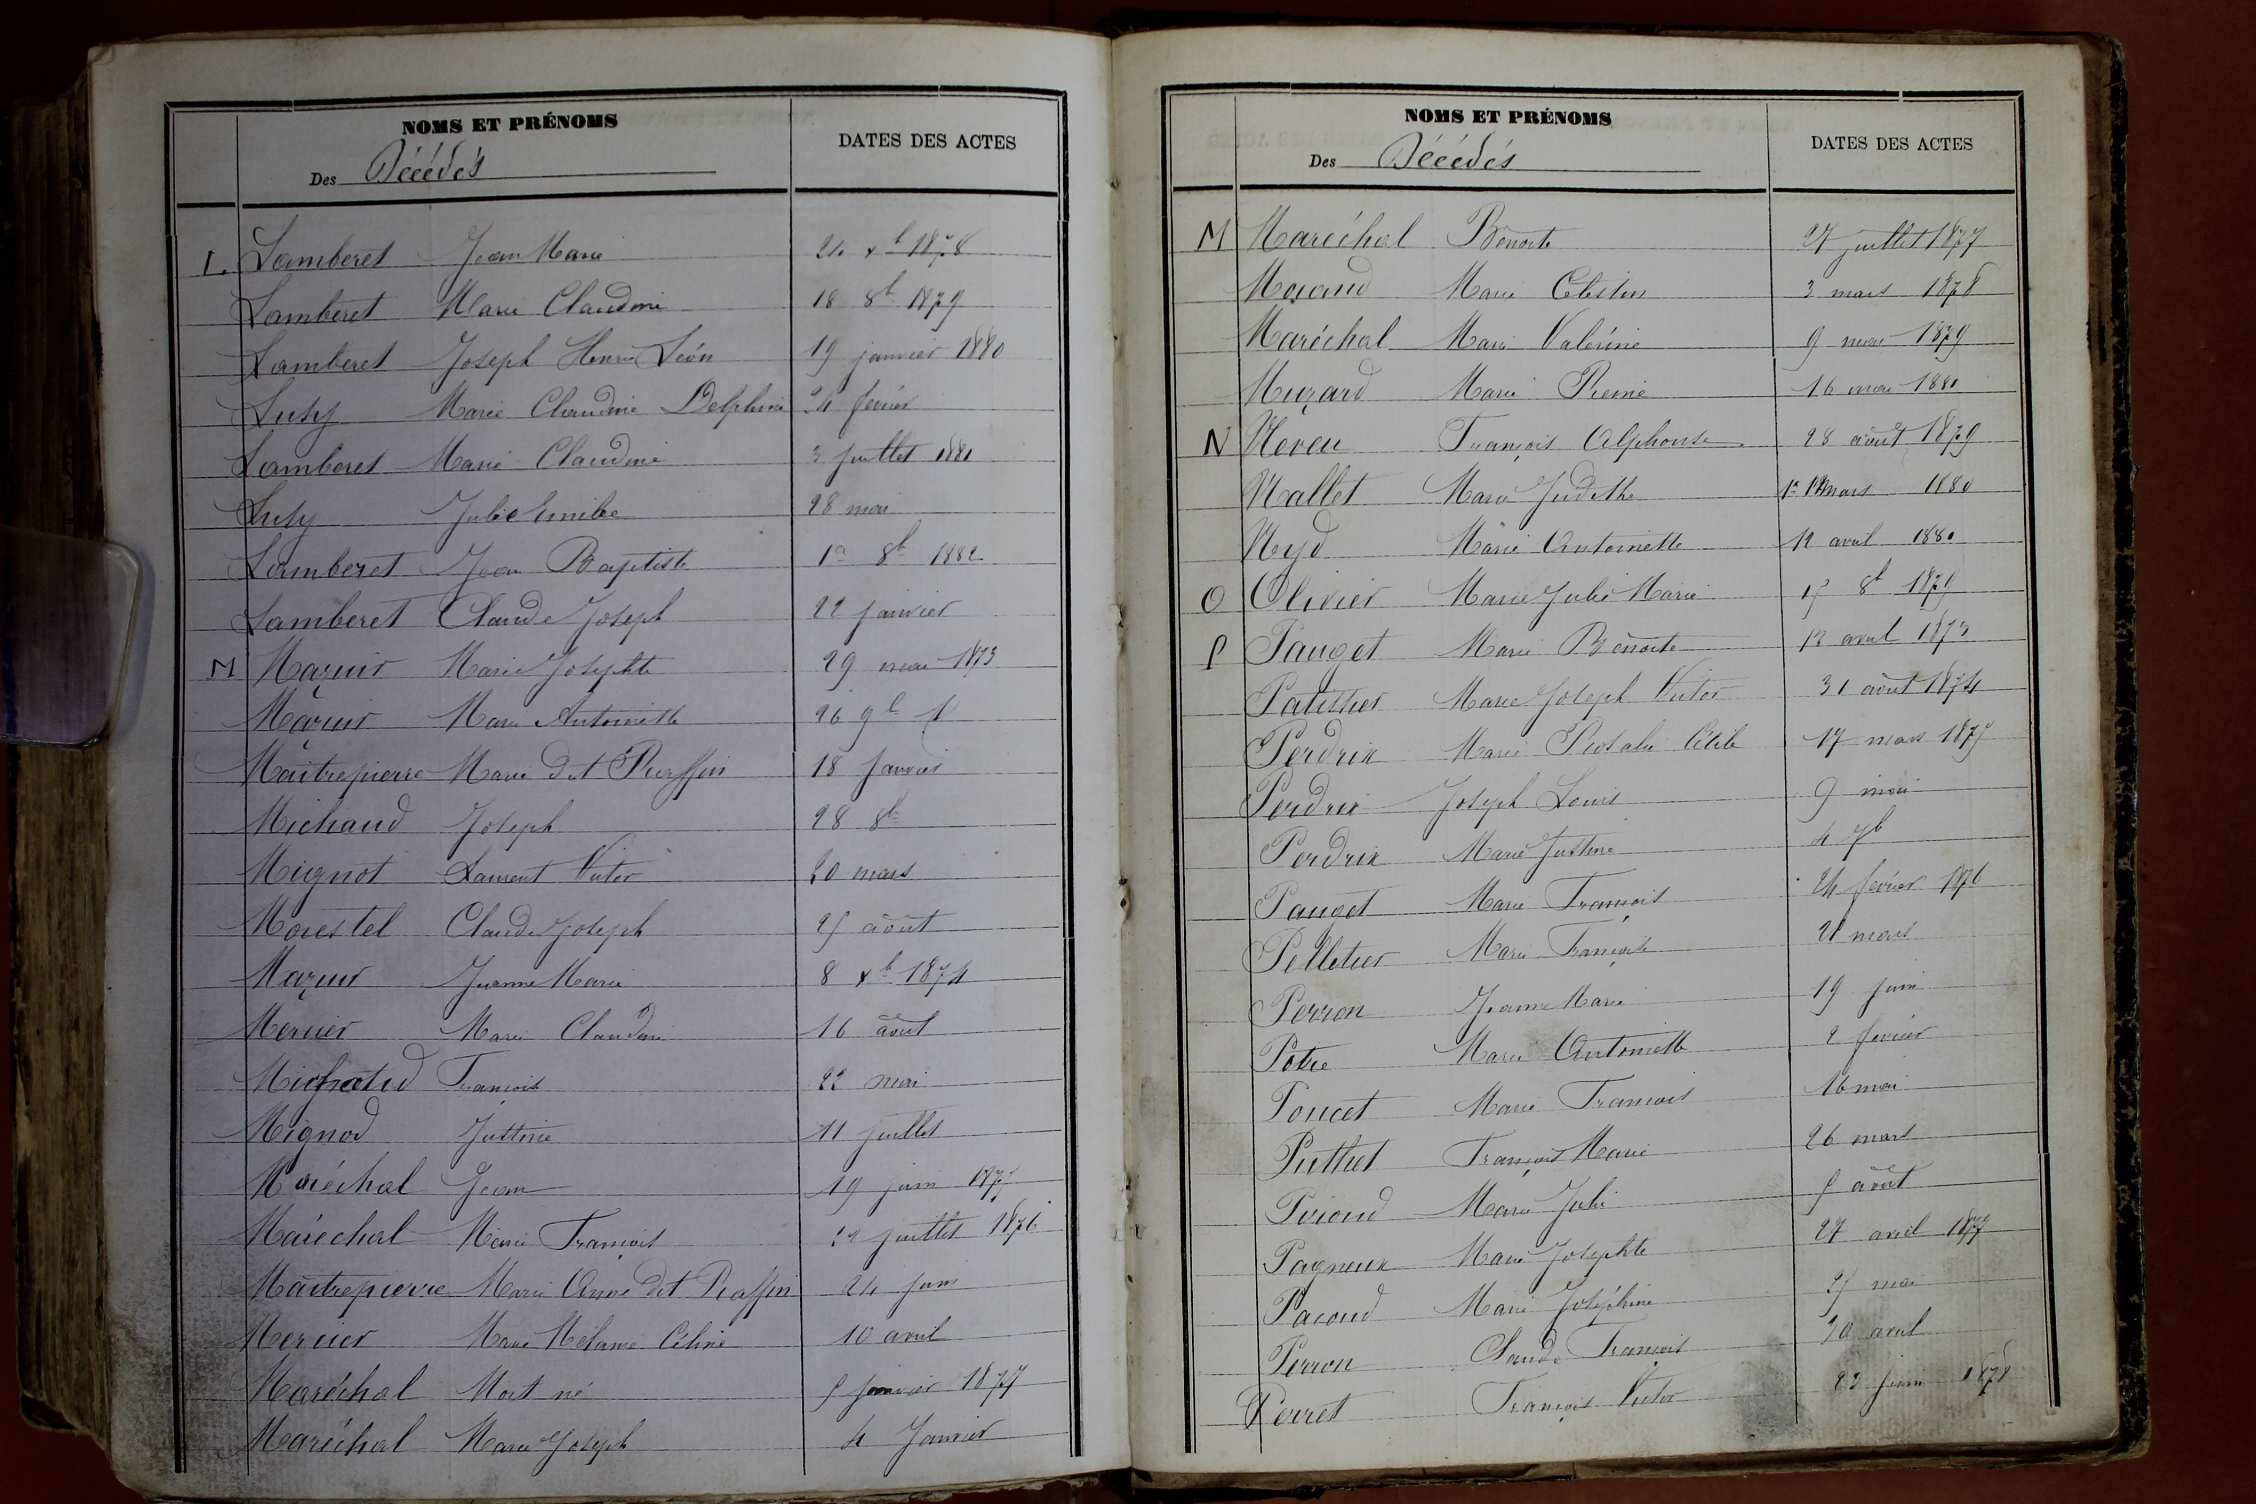 NOMS ET PRÉNOMS
Des Décédés
DATES DES ACTES
L. Lamberet Jean Marie 24 xb 1878
Lamberet Marie Claudine 18 8b 1879
Lamberet Joseph Henri Léon 19 janvier 1880
Luty Marie Claudine Delphine 24 février
Lamberet Marie Claudine 3 juillet 1881
Luty Julie Emilie 28 mai
Lamberet Jean Baptiste 1er 8b 1882
Lamberet Claude Joseph 22 janvier
M Mazuir Marie Josephte 29 mai 1873
Mazuir Marie Antoinette 26 9b
Maîtrepierre Marie dit Piaffin 18 janvier
Michaud Joseph 28 8b
Mignot Laurent Victor 20 mars
Morestel Claude Joseph 25 août
Mazuir Jeanne Marie 8 xb 1874
Mercier Marie Claudine 16 août
Michaud François 22 mai
Mignod Justine 11 juillet
Maréchal Jean 19 juin 1875
Maréchal Marie François juillet 1876
Maîtrepierre Marie Anne dit Piaffin 24 juin
Mercier Marie Mélanie Céline 10 avril
Maréchal Mort né 5 janvier 1877
Maréchal Marie Joseph 4 Janvier
NOMS ET PRÉNOMS
Des Décédés
DATES DES ACTES
M Maréchal Benoite 27 juillet 1877
Morand Marie Célestin 3 mars 1878
Maréchal Marie Valérine 9 mai 1879
Muzard Marie 16 mai 1881
N Neveu François Alphonse 28 août 1879
Nallet Marie Judithe 1er mars 1880
Nyd Marie Antoinette 12 avril 1880
O Olivier Marie Julie Marie 15 8b 1879
P Pauget Marie Benoite 12 avril 1873
Patissier Marie Joseph Victor 31 août 1874
Perdrix Marie Rosalie 17 mars 1875
Perdrix Joseph Louis 9 mai
Perdrix Marie Justine 4 7b
Pauget Marie François 24 février 1876
Pelletier Marie Françoise 21 mars
Perron Jeanne Marie 19 juin
Marie Antoinette 2 février
Poncet Marie François 16 mai
Puthet François Marie 26 mars
Marie Julie 5 août
Pagneux Marie Josephte 27 avril 1877
Pacoud Marie Joséphine 25 mai
Perron Claude François 20 avril
Perret François Victor 23 juin 1878